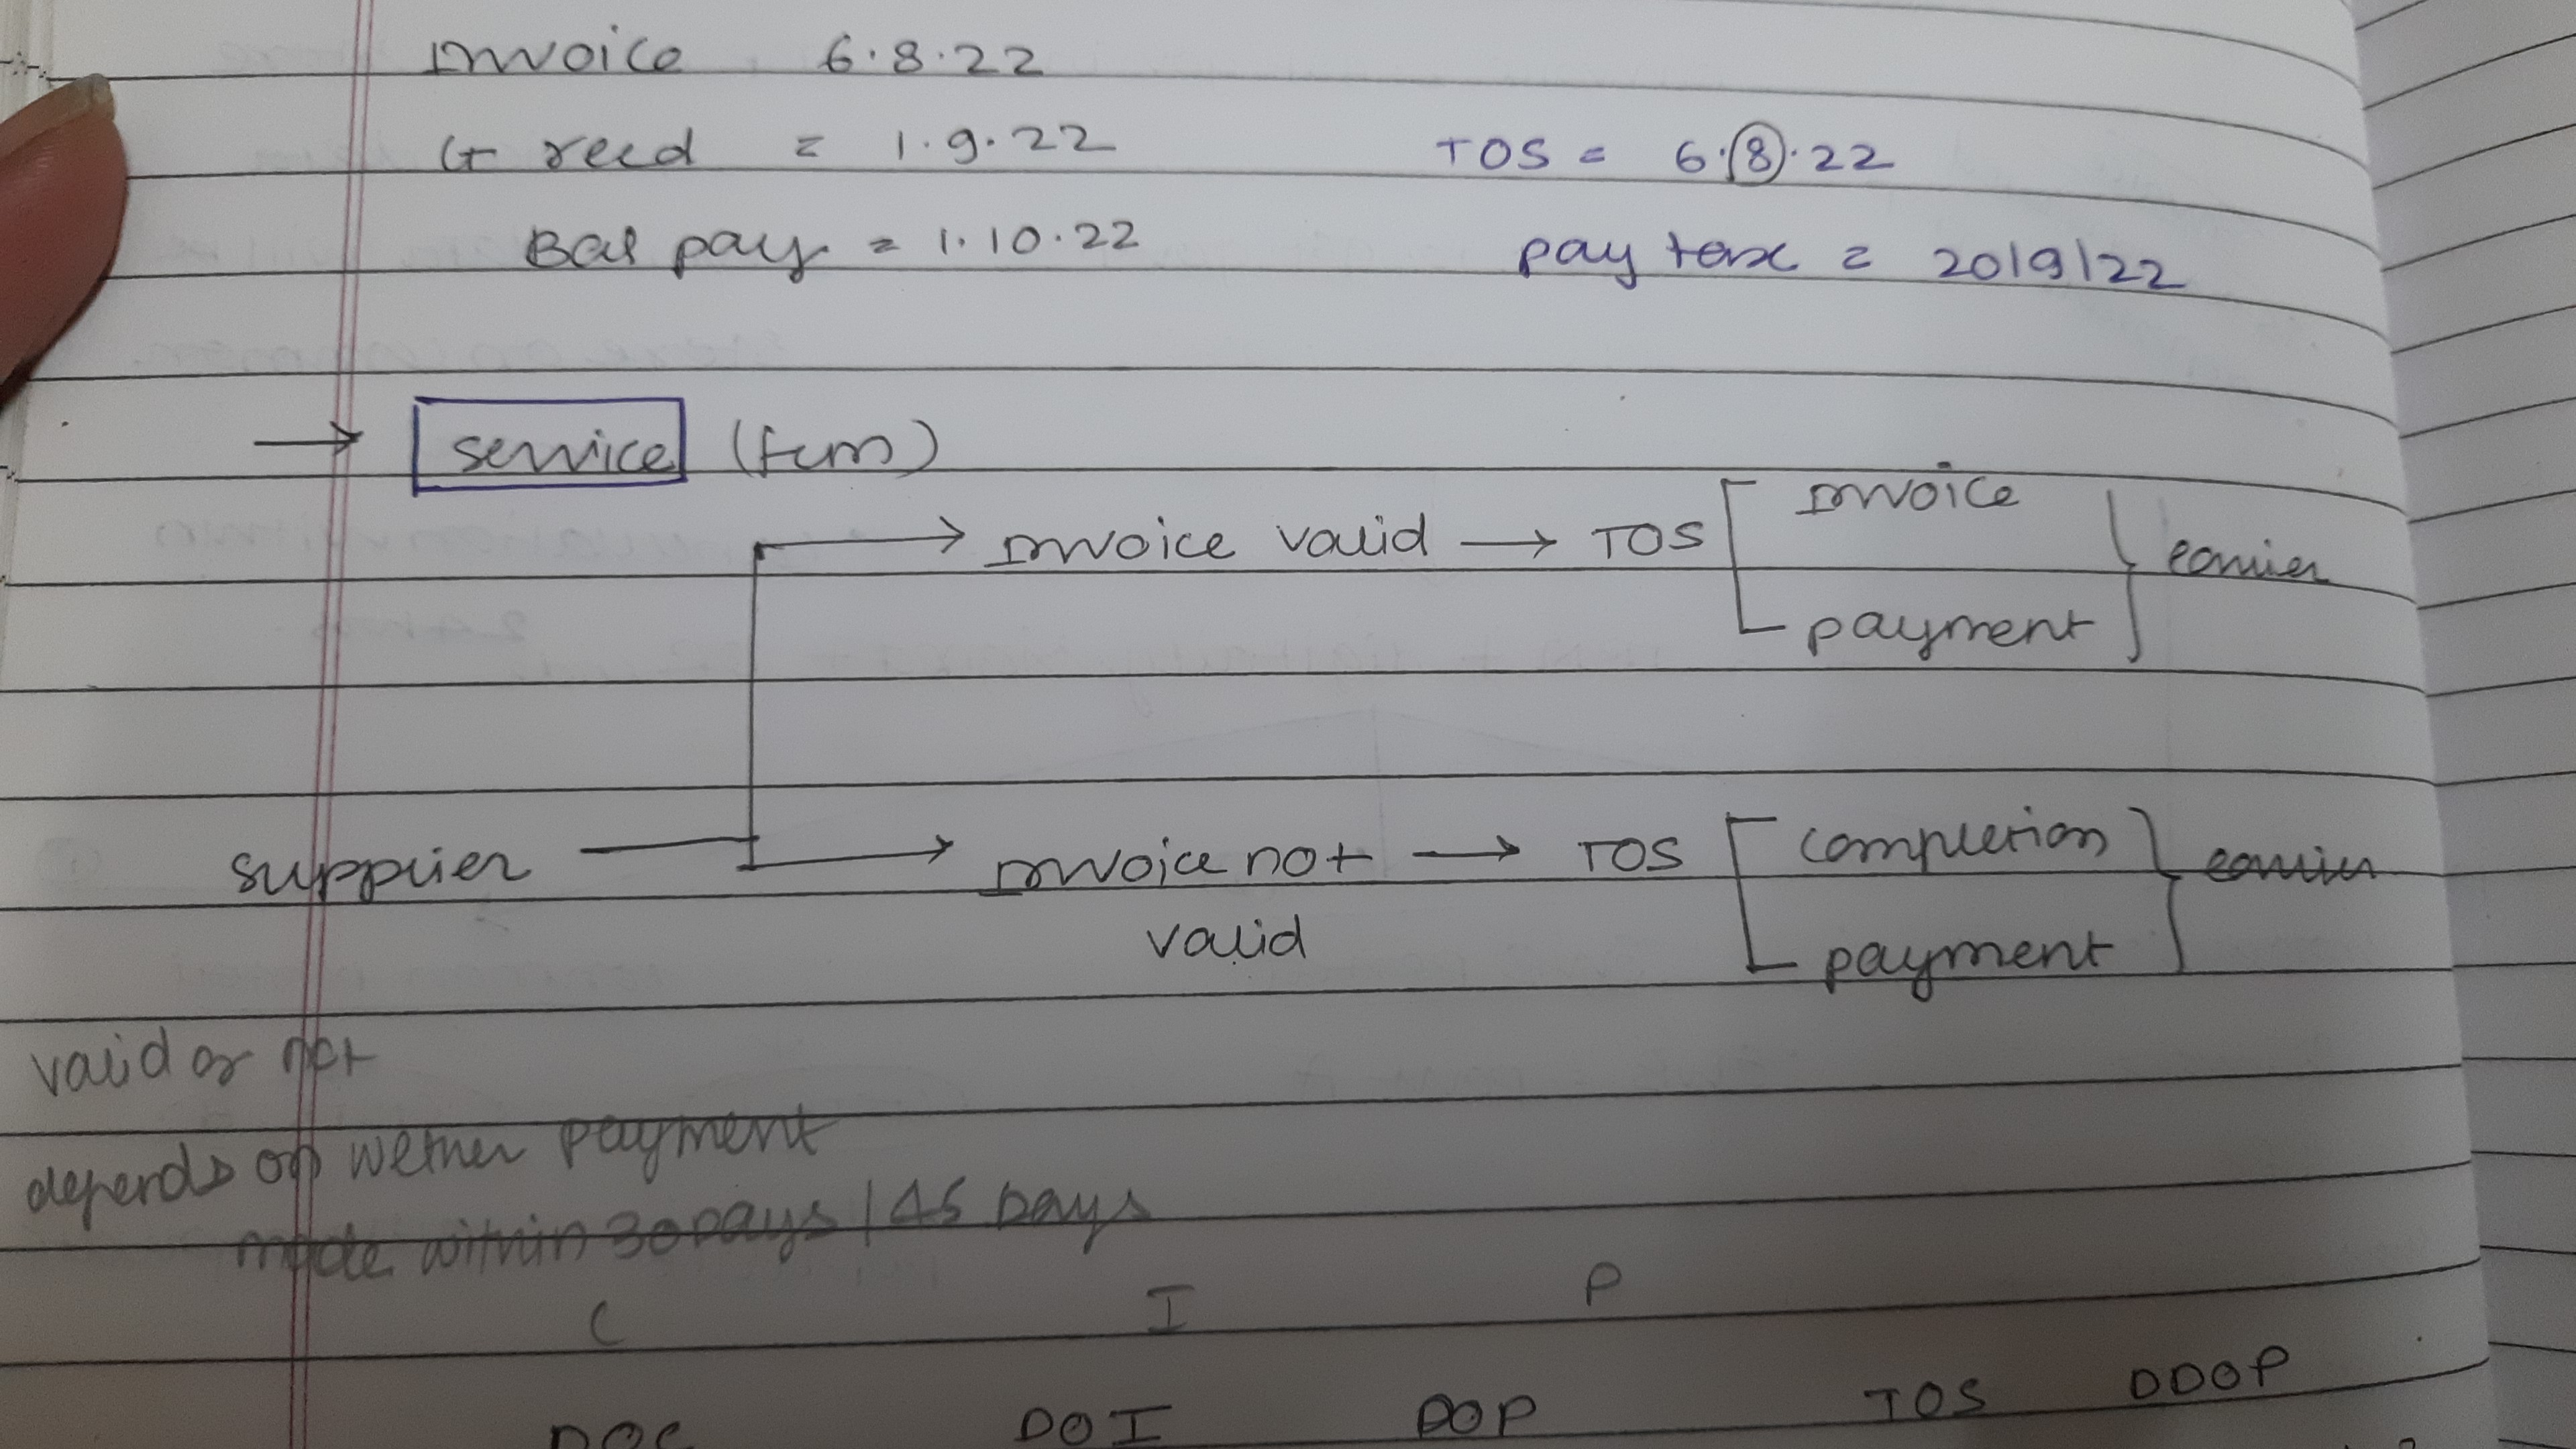 Invoice 6.8.22
G+ recd = 1.9.22 TOS = 6.8.22
Bal pay = 1.10.22 pay tax = 20/9/22
→ service (fcm)
Invoice valid → TOS Invoice
earlier
payment
supplier → Invoice not → TOS completion earlier
valid payment
valid or not
depends on wether payment
made within 30 Days / 45 Days
C I P
DOC DOI DOP TOS DDOP